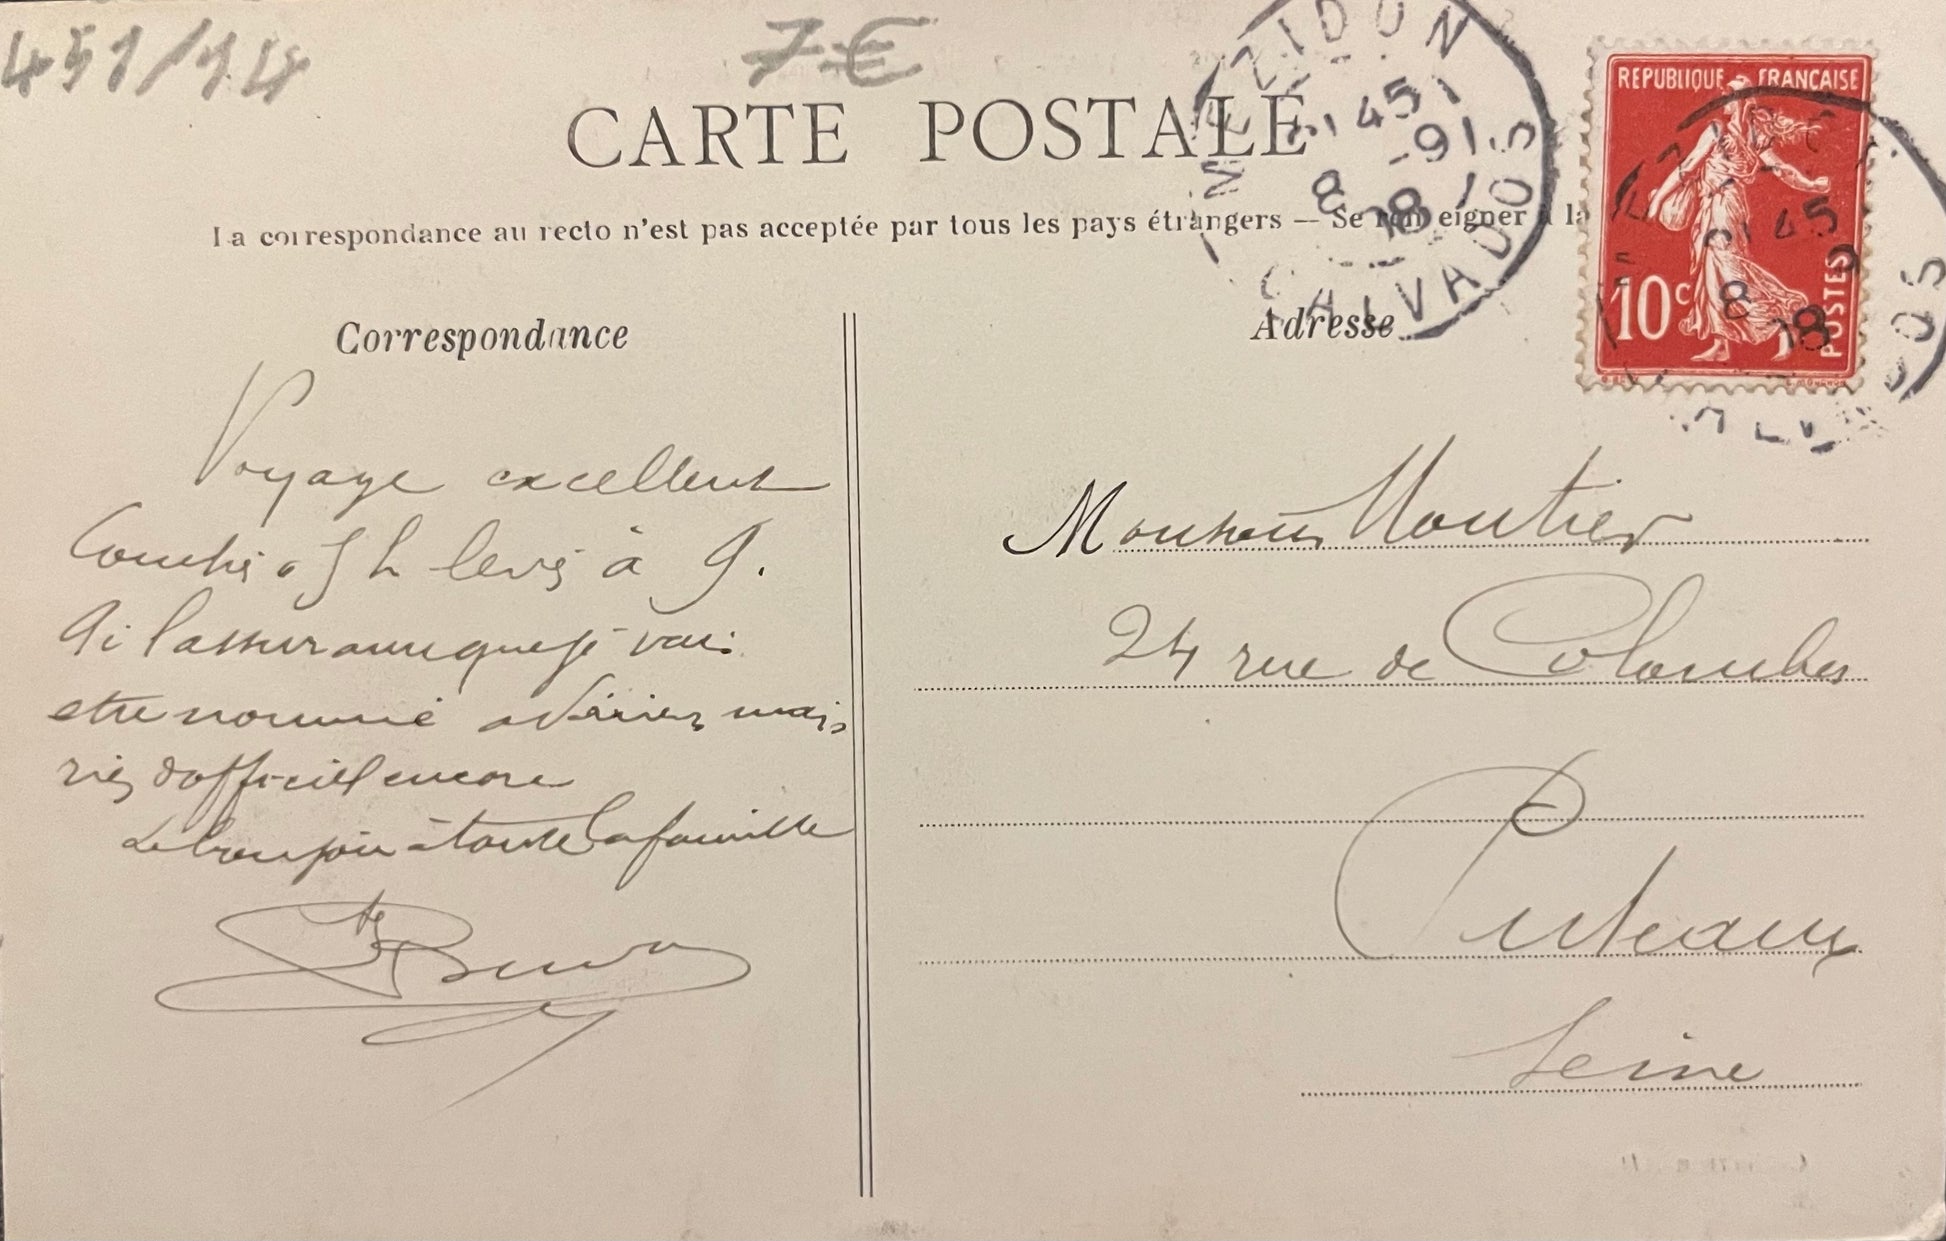 451/14
7€
CARTE POSTALE
La correspondance au recto n'est pas acceptée par tous les pays étrangers — Se renseigner à la
Correspondance
Adresse
MEZIDON
CALVADOS
45
8
REPUBLIQUE FRANÇAISE
10c
POSTES
Voyage excellent
Couché à 5 h levé à 9.
Ai l'assurance que je vais
etre nommé mais
rien d'officiel encore
Le bonjour à toute la famille
Monsieur Moutier
24 rue de Colombes
Puteaux
Seine